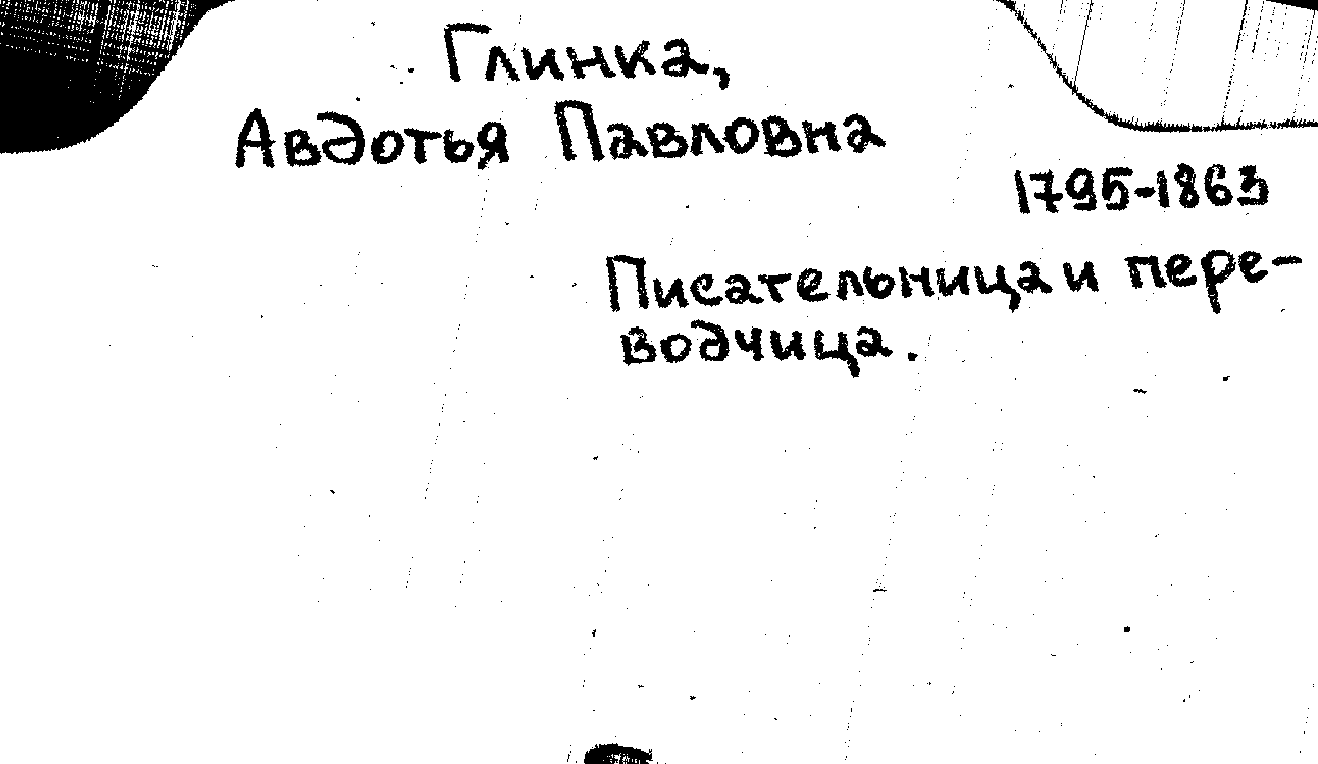 Глинка,
Авдотья Павловна
1795-1863
Писательница и пере-
водчица.